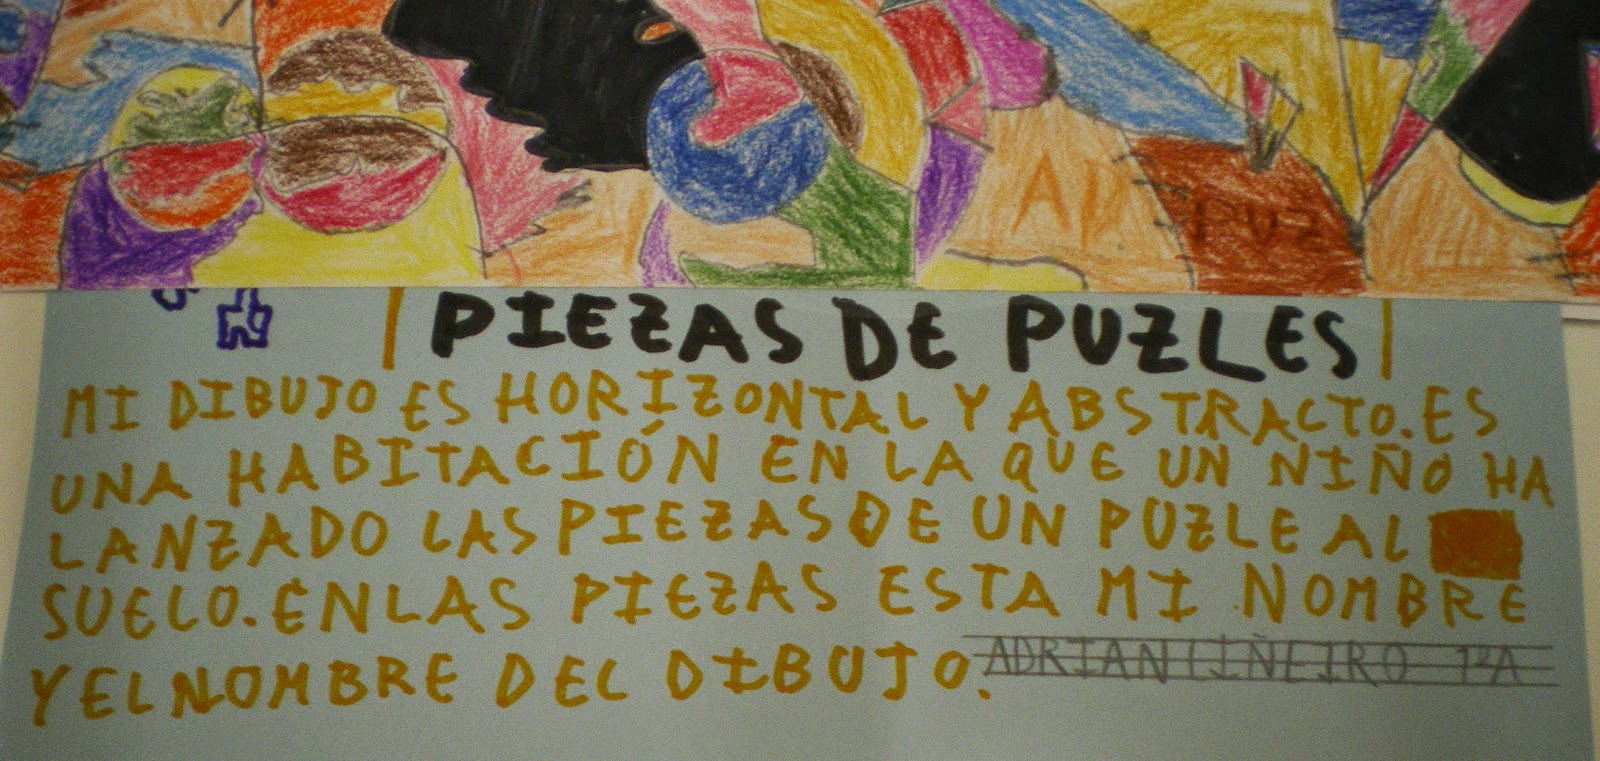 A
PUZ
PIEZAS DE PUZLES
MI DIBUJO ES HORIZONTAL Y ABSTRACTO. ES
UNA HABITACIÓN EN LA QUE UN NIÑO HA
LANZADO LAS PIEZAS DE UN PUZLE AL
SUELO. EN LAS PIEZAS ESTA MI NOMBRE
Y EL NOMBRE DEL DIBUJO.
ADRIAN LIÑEIRO 1ºA